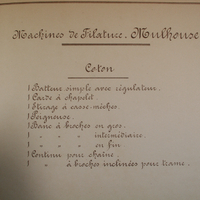 Machines de Filature. Mulhouse
Coton
1 Batteur simple avec régulateur.
1 Carde à chapelet
1 Etirage à casse-mèches.
1 Peigneuse.
1 Banc à broches en gros.
1 " " " intermédiaire.
1 " " " en fin
1 Continu pour chaîne.
1 " à broches inclinées pour trame.